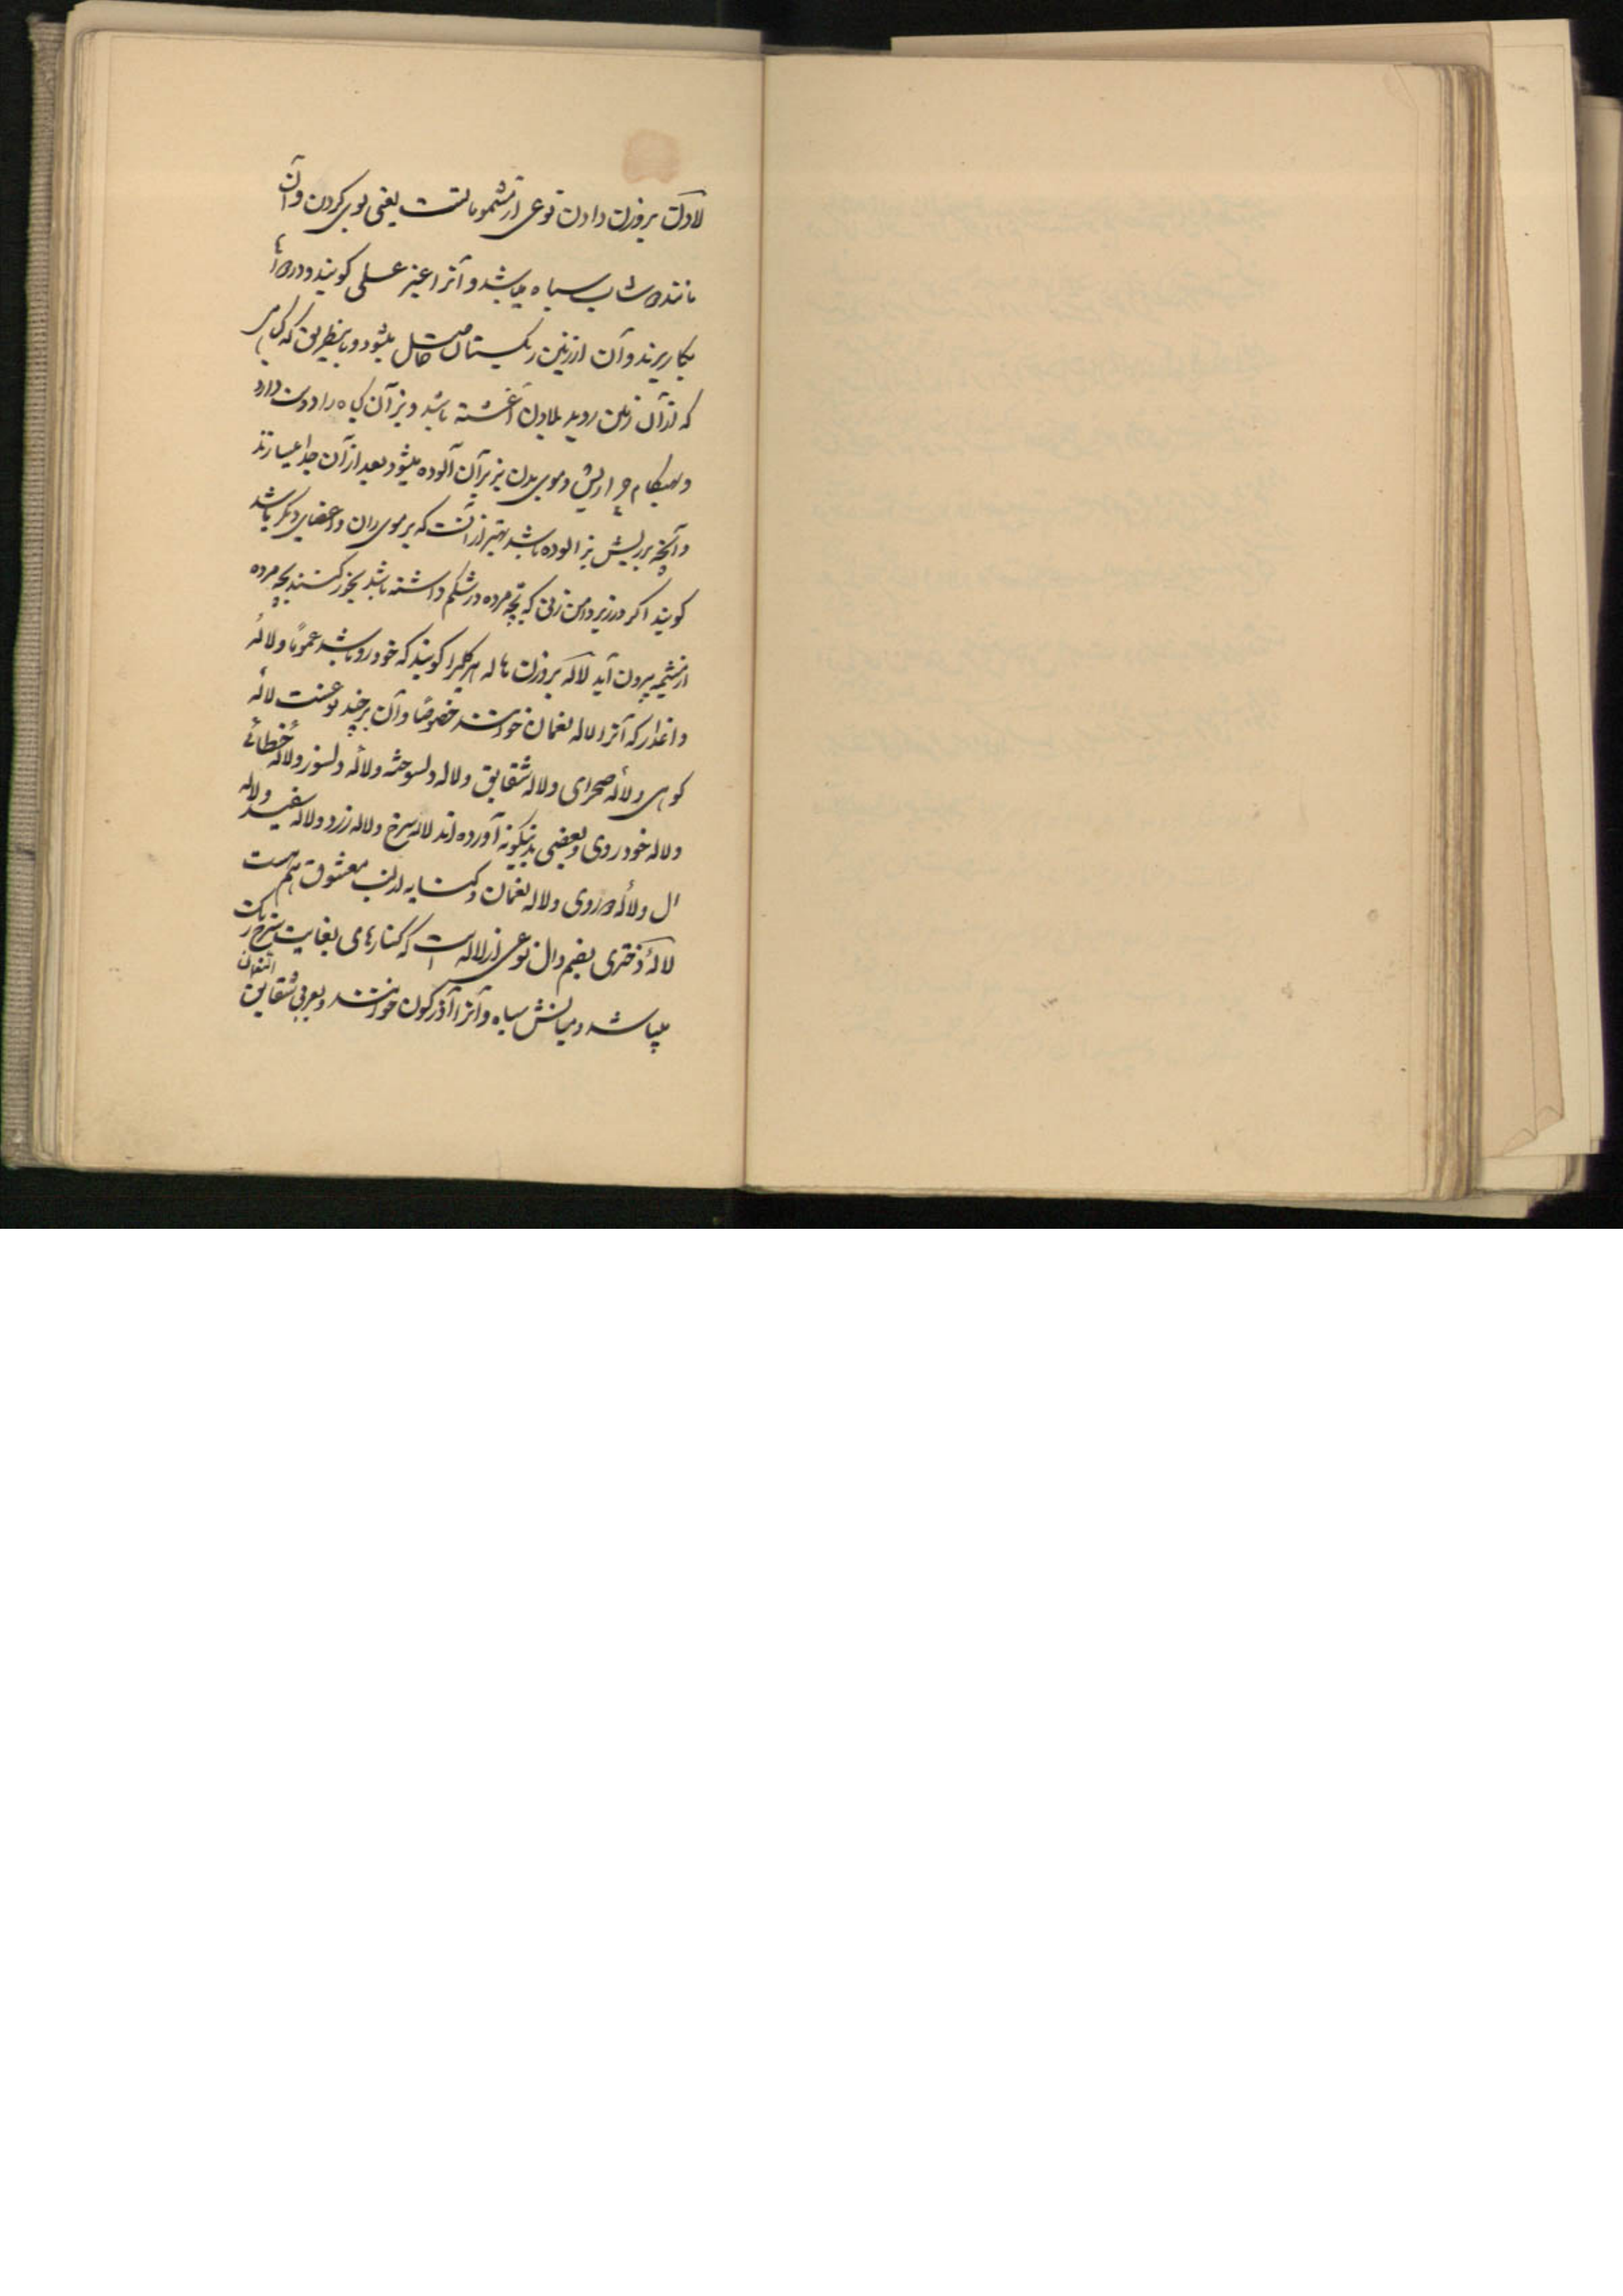 لادن بر وزن دادن نوعی از مشمومانست یعنی بوی کردن و آن
مانند دوشاب سیاه میباشد و آنرا عنبر عسلی گویند و در دواها
بکار برند و آن از زمین ریگستان حاصل میشود و باینطریق که گیاهی
که از آن زمین روید بلادن آغشته باشد و بز آن گیاه را دوست دارد
و بهنگام چرا ریش و موی بدن بز بر آن آلوده میشود بعد از آن جدا میسازند
و آنچه بر ریش بز آلوده باشد بهتر از آنست که بر موی ران و اعضای دیگر باشد
گویند اگر در زیر دامن زنی که بچه مرده در شکم داشته باشد بخور کنند بچه مرده
از مشیمه بیرون آید لاله بر وزن هاله هر گلیرا گویند که خودرو باشد عموماً و لالهٔ
داغدار که آنرا لاله نعمان خوانند خصوصاً و آن بر چند نوعست لالهٔ
کوهی و لالهٔ صحرای و لاله شقایق و لاله دلسوخته و لاله دلسوز و لاله خطائی
و لاله خودروی و بعضی بدینگونه آورده اند لاله سرخ و لاله زرد و لاله سفید و لاله
ال و لالهٔ دوروی و لاله نعمان و کنایه از لب معشوق هم هست
لالهٔ دختری بضم دال نوعی از لاله است که کنارهای بغایت سرخ رنگ
میباشد و میانش سیاه و آنرا آذرگون خوانند و بعربی شقایق النعمان